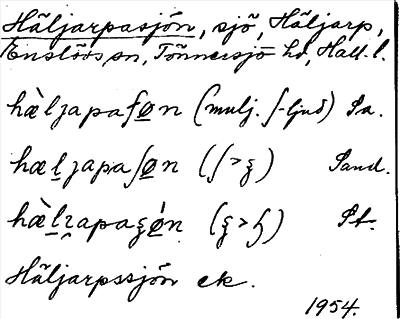 Häljarpasjön, sjö, Häljarp,
Enslövs sn, Tönnersjö hd, Hall. l.
hæ̀lʒapaʃø̱n (mulj. ʃ-ljud) Sa.
hæḻʒapaʃø̱n (ʃ > ȿ) Sand.
hæ̀ḻʒapaȿǿ̱n St.
Häljarpssjön ek.
1954.